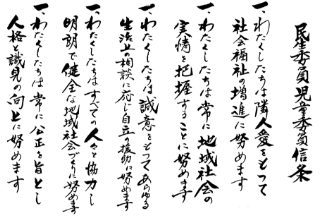 民生委員児童委員信条
一、わたくしたちは隣人愛をもって
社会福祉の増進に努めます
一、わたくしたちは常に地域社会の
実情を把握することに努めます
一、わたくしたちは誠意をもってあらゆる
生活上の相談に応じ自立の援助に努めます
一、わたくしたちはすべての人々と協力し
明朗で健全な地域社会づくりに努めます
一、わたくしたちは常に公正を旨とし
人格と識見の向上に努めます